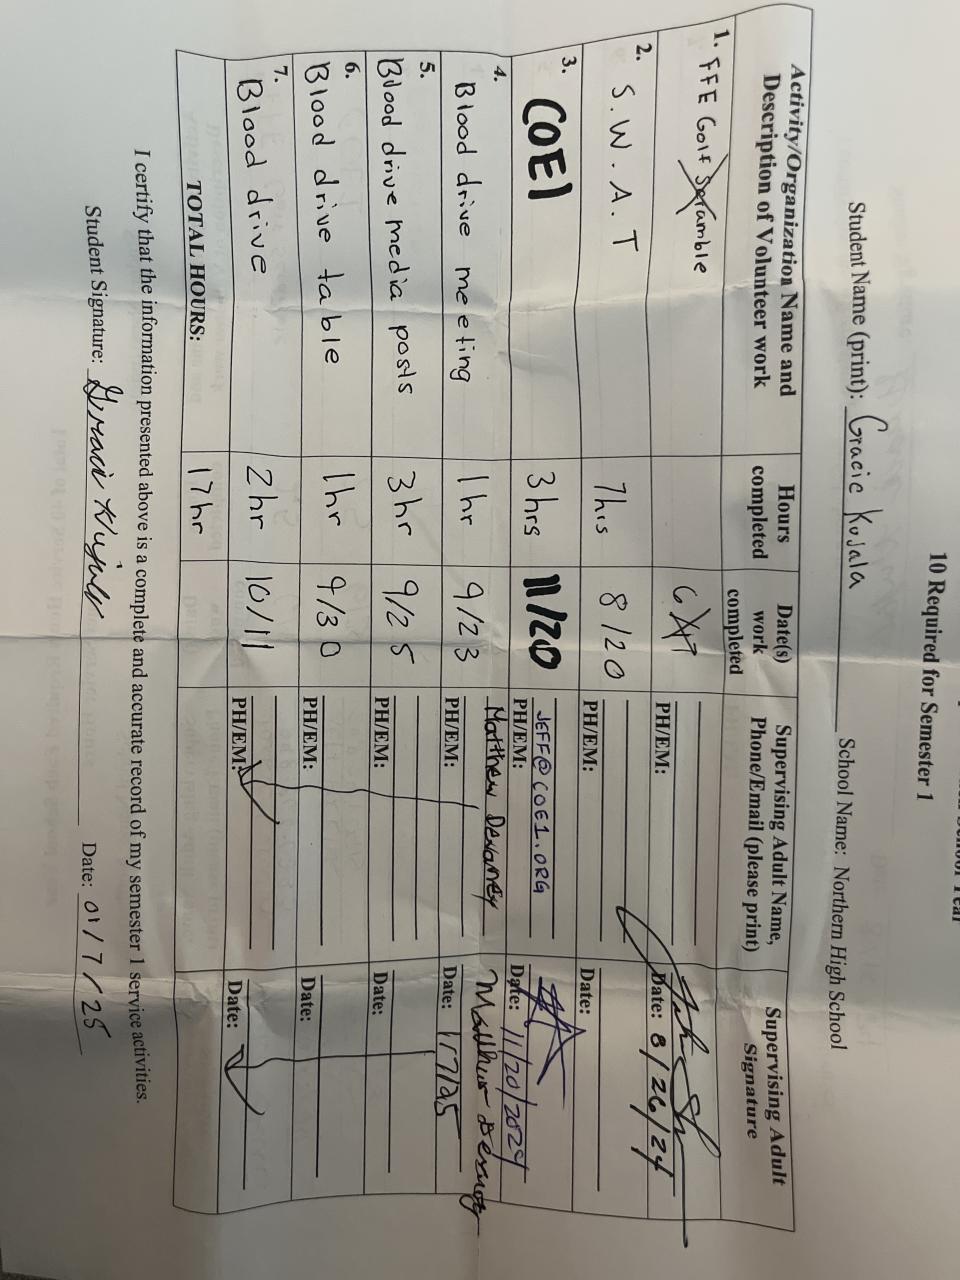 10 Required for Semester 1
Student Name (print): Gracie Kujala School Name: Northern High School
Activity/Organization Name and Description of Volunteer work
Hours completed
Date(s) work completed
Supervising Adult Name, Phone/Email (please print)
Supervising Adult Signature
1. FFE Golf Scramble 6/17 PH/EM: Date: 8/26/24
2. S.W.A.T 7hrs 8/20 PH/EM: Date:
3. COE1 3 hrs 11/20 JEFF@COE1.ORG PH/EM: Date: 11/20/2024
4. Blood drive meeting 1hr 9/23 Matthew PH/EM: Matthew Date: 1/7/25
5. Blood drive media posts 3hr 9/25 PH/EM: Date:
6. Blood drive table 1hr 9/30 PH/EM: Date:
7. Blood drive 2hr 10/11 PH/EM: Date:
TOTAL HOURS: 17hr
I certify that the information presented above is a complete and accurate record of my semester 1 service activities.
Student Signature: Gracie Kujala Date: 01/7/25